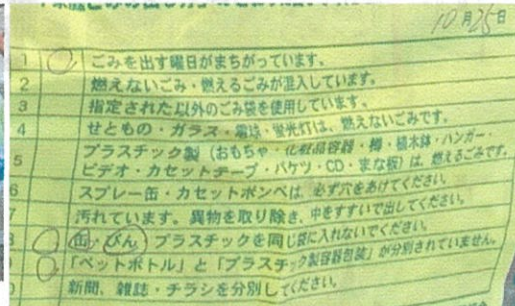 10月25日
1 ごみを出す曜日がまちがっています。
2 燃えないごみ・燃えるごみが混入しています。
3 指定された以外のごみ袋を使用しています。
4 せともの・ガラス・電球・蛍光灯は、燃えないごみです。
5 プラスチック製（おもちゃ・化粧品容器・樽・植木鉢・ハンガー・
ビデオ・カセットテープ・バケツ・CD・まな板）は、燃えるごみです。
6 スプレー缶・カセットボンベは、必ず穴をあけてください。
7 汚れています。異物を取り除き、中をすすいで出してください。
8 缶、びん、プラスチックを同じ袋に入れないでください。
9 「ペットボトル」と「プラスチック製容器包装」が分別されていません。
新聞、雑誌・チラシを分別してください。